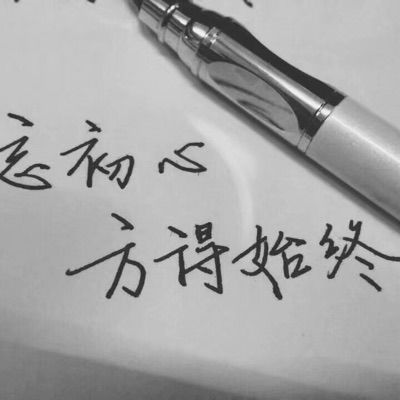 忘初心
方得始终